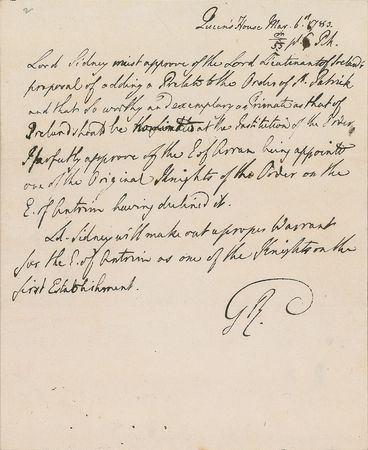 2
Queen's House Mar. 6th 1783.
m/55 pt 6 P.M.
Lord Sidney must approve of the Lord Lieutenant of Ireland's
proposal of adding a Prelate to the Order of St. Patrick
and that so worthy and exemplary a Primate as that of
Ireland should be at the Institution of the Order
I perfectly approve of the E. of Arran being appointed
one of the Original Knights of the Order on the
E. of Antrim having declined it.
Ld. Sidney will make out a proper Warrant
for the E. of Antrim as one of the Knights on the
first Establishment.
GR.